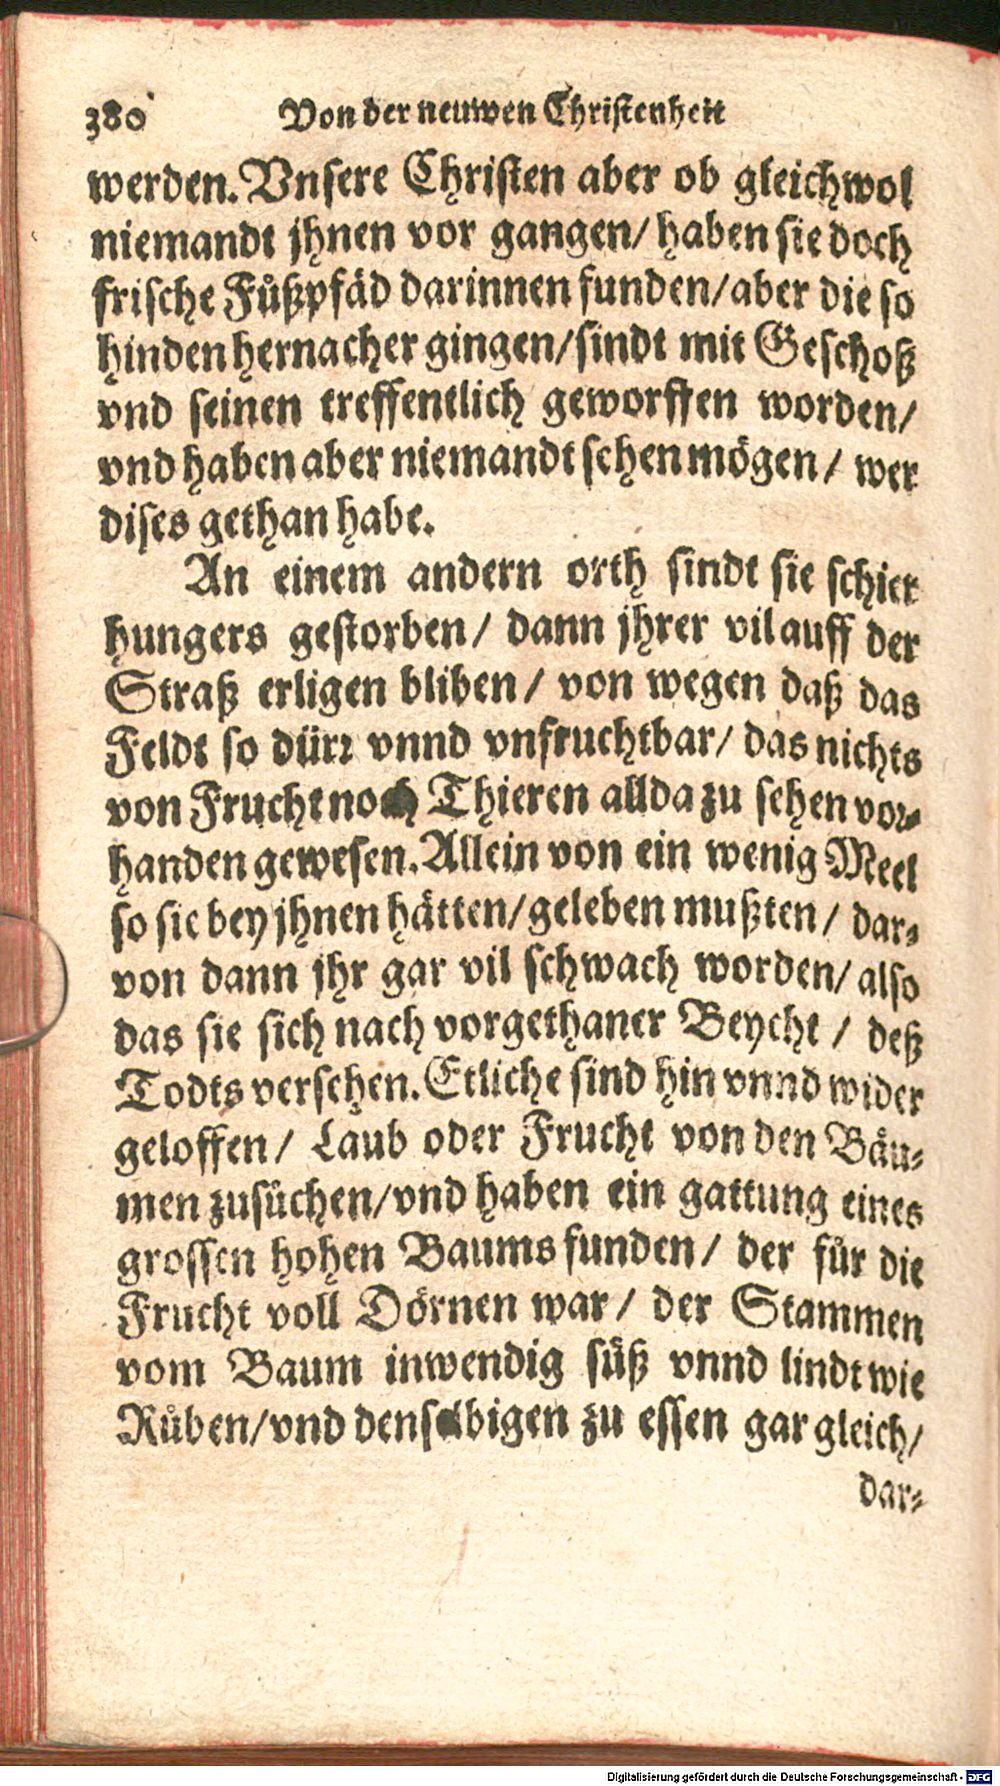 380 Von der neuwen Christenheit
werden. Vnsere Christen aber ob gleichwol
niemandt jhnen vor gangen/ haben sie doch
frische Fůßpfäd darinnen funden/ aber die so
hinden hernacher gingen/ sindt mit Geschoß
vnd seinen treffentlich geworffen worden/
vnd haben aber niemandt sehen mögen/ wer
dises gethan habe.
An einem andern orth sindt sie schier
hungers gestorben/ dann jhrer vil auff der
Straß erligen bliben/ von wegen daß das
Feldt so dürr vnnd vnfruchtbar/ das nichts
von Frucht noch Thieren allda zu sehen vor⸗
handen gewesen. Allein von ein wenig Meel
so sie bey jhnen hätten/ geleben mußten/ dar⸗
von dann jhr gar vil schwach worden/ also
das sie sich nach vorgethaner Beycht/ deß
Todts versehen. Etliche sind hin vnnd wider
geloffen/ Laub oder Frucht von den Bäu⸗
men zusüchen/ vnd haben ein gattung eines
grossen hohen Baums funden/ der für die
Frucht voll Dörnen war/ der Stammen
vom Baum inwendig süß vnnd lindt wie
Růben/ vnd denselbigen zu essen gar gleich/
dar⸗
Digitalisierung gefördert durch die Deutsche Forschungsgemeinschaft - DFG